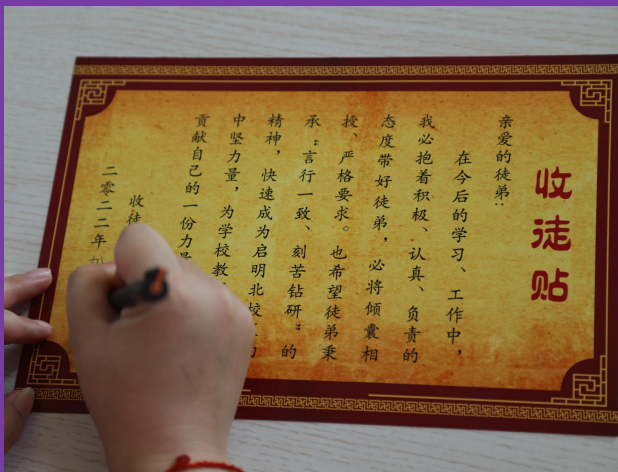 收徒贴
亲爱的徒弟：
在今后的学习、工作中，
我必抱着积极、认真、负责的
态度带好徒弟，必将倾囊相
授、严格要求。也希望徒弟秉
承“言行一致、刻苦钻研”的
精神，快速成为启明北校
中坚力量，为学校教
贡献自己的一份力量
收徒
二零二二年九